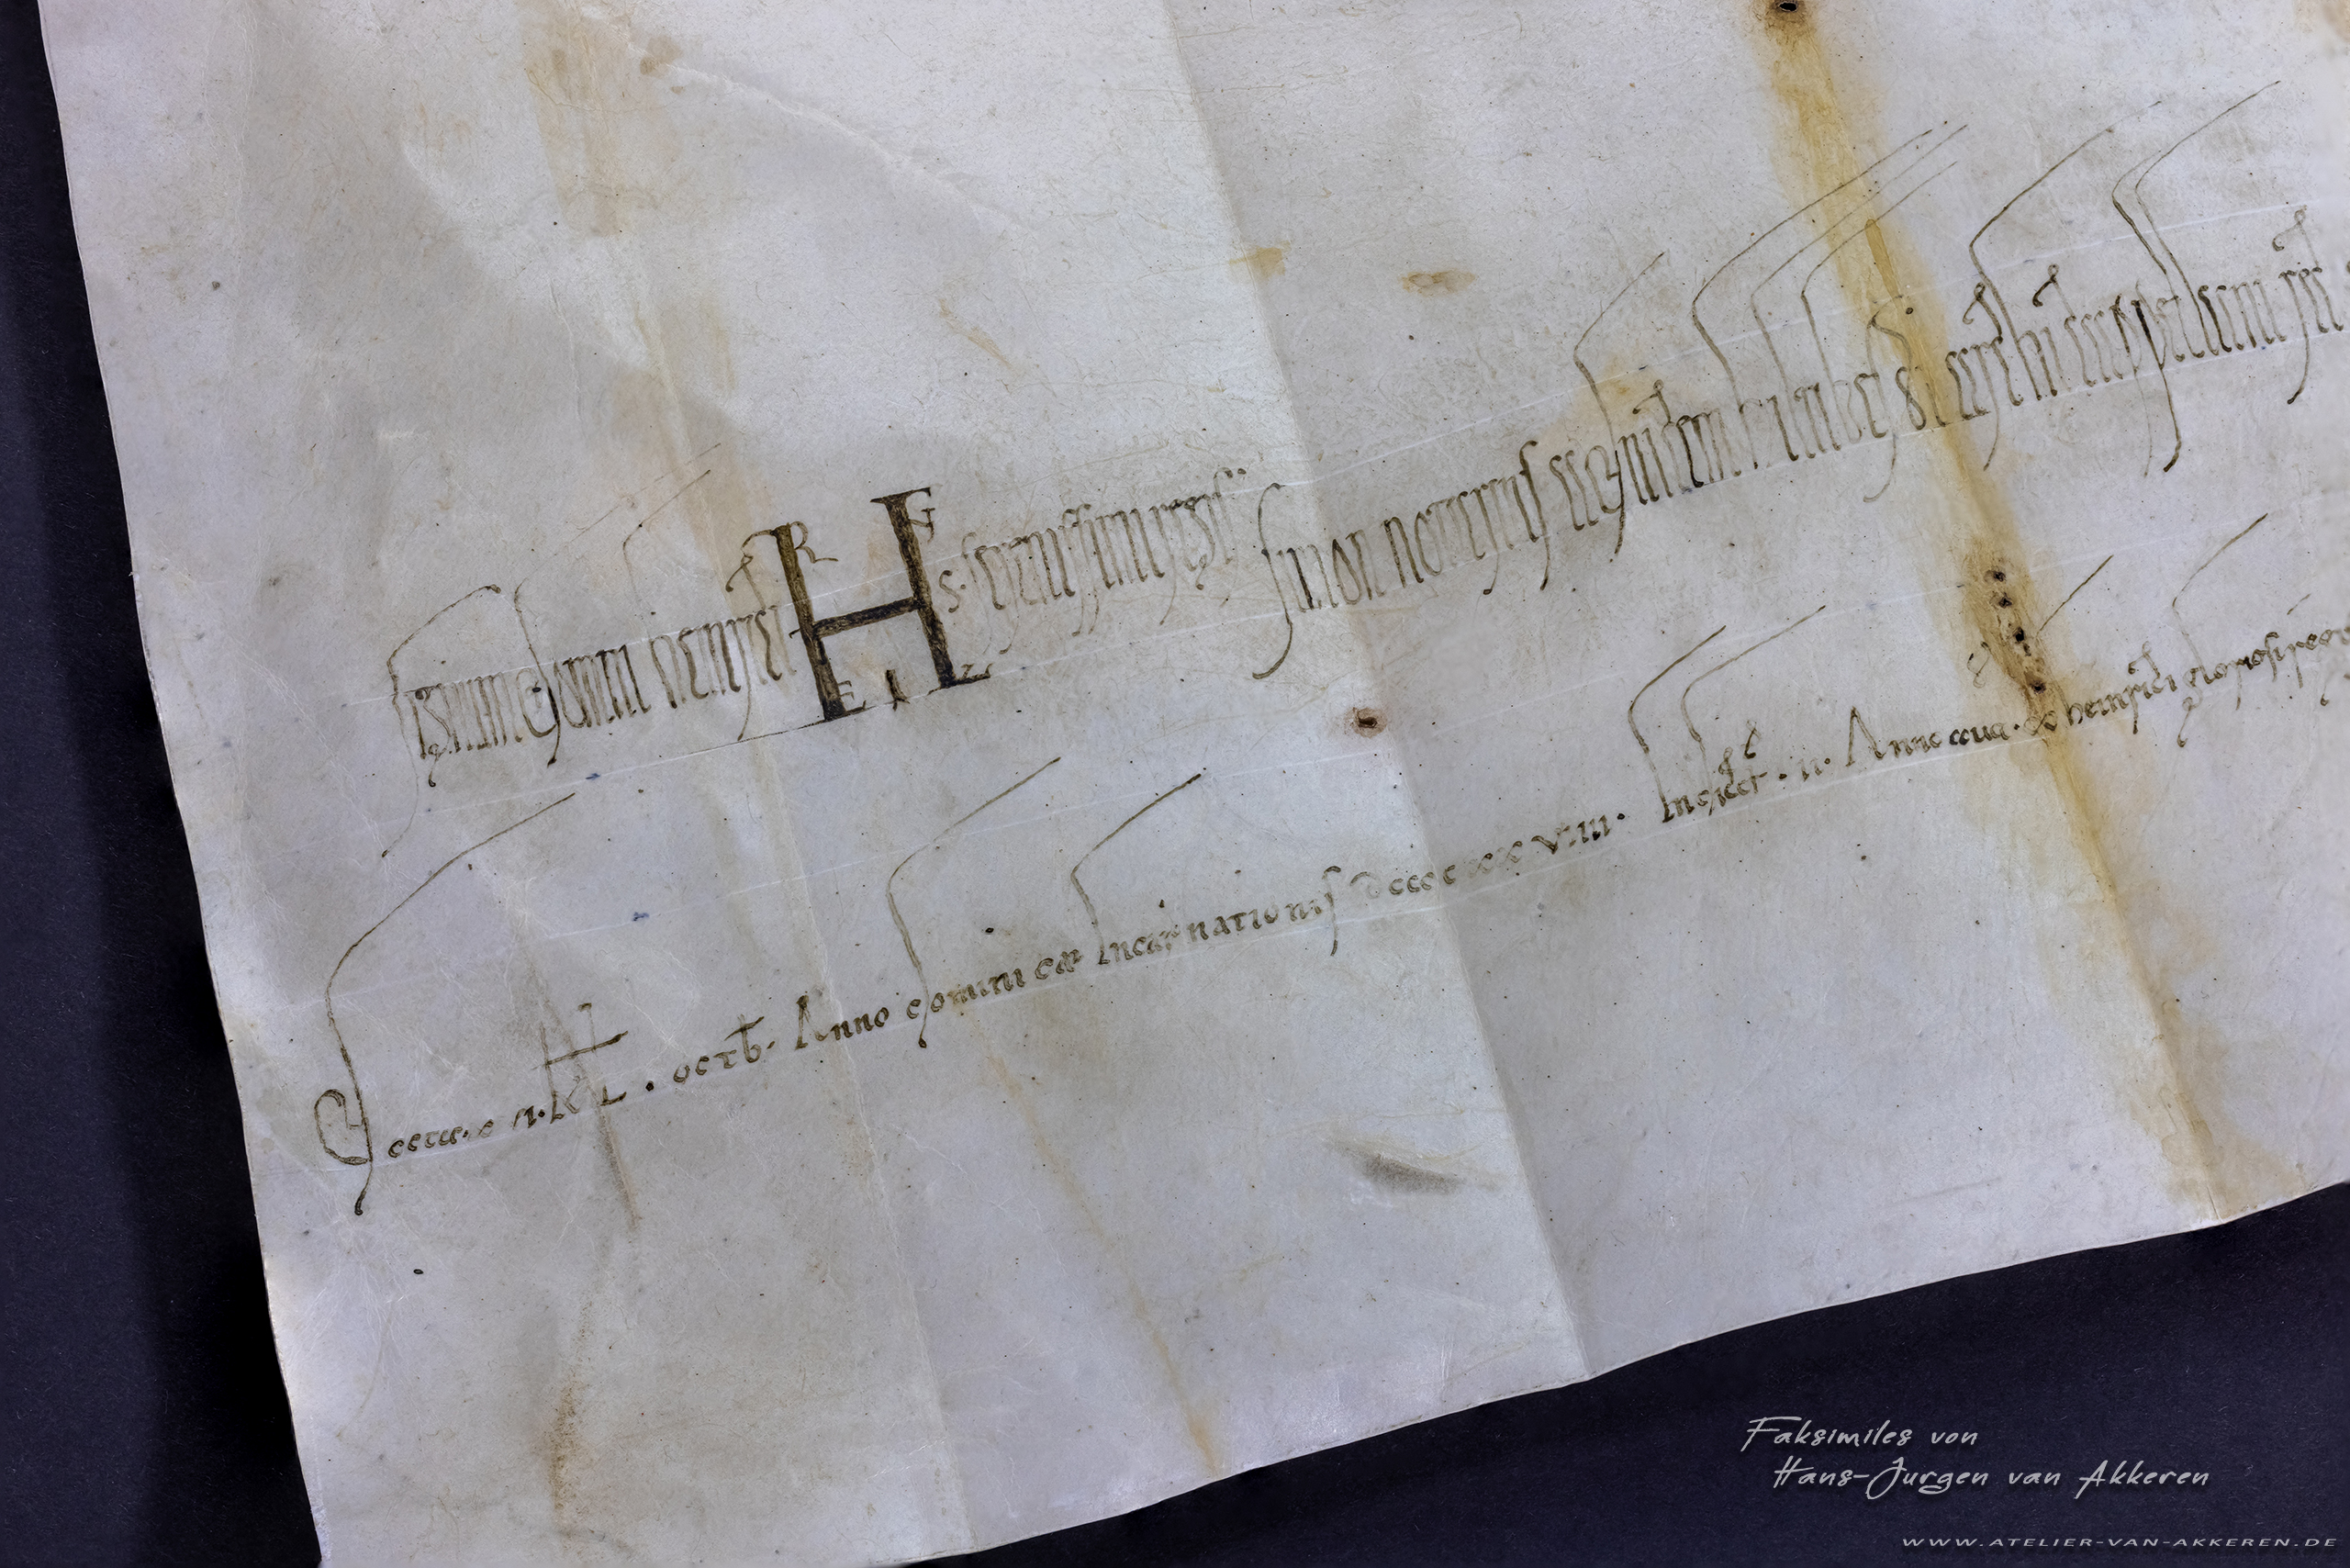 Signum domini heinrici serenissimi regis
Simon notarius ad uicem hiltiberti archicappellani
Data · KL · octb · Anno dominicae Incarnationis dcccc xx viiii · Indict · ii · Anno aut · heinrici gloriosi
R G S E I Z
Faksimiles von
Hans-Jurgen van Akkeren
WWW.ATELIER-VAN-AKKEREN.DE